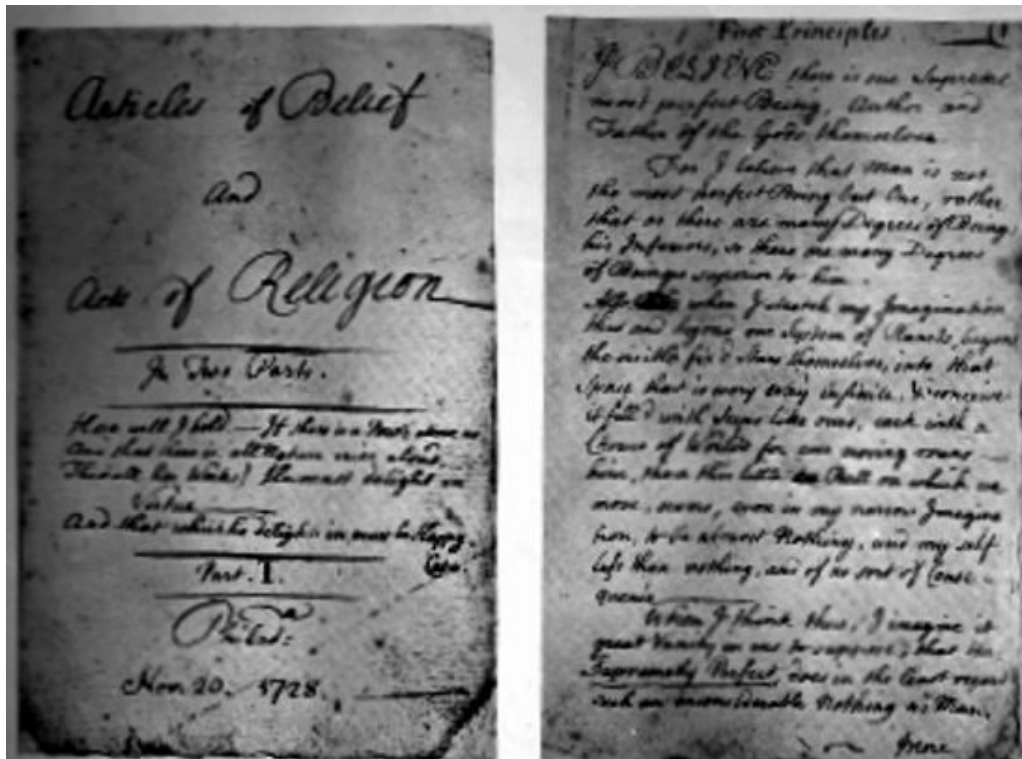 Articles of Belief
and
Acts of Religion
In Two Parts.
Here will I hold — If there is a Pow'r above us
And that there is, all Nature cries aloud,
Thro' all her Works! He must delight in
Virtue
And that which he delights in must be Happy.
Cato.
Part. I.
Philada:
Nov. 20. 1728.
First Principles
I BELIEVE there is one Supreme
most perfect Being, Author and
Father of the Gods themselves.
For I believe that Man is not
the most perfect Being but One, rather
that as there are many Degrees of Beings
his Inferiors, so there are many Degrees
of Beings superior to him.
Also when I stretch my Imagination
thro' and beyond our System of Planets, beyond
the visible fix'd Stars themselves, into that
Space that is every way infinite, & conceive
it fill'd with Suns like ours, each with a
Chorus of Worlds for ever moving round
him, then this little Ball on which we
move, seems, even in my narrow Imagina
tion, to be almost Nothing, and my self
less than nothing, and of no sort of Conse-
quence
When I think thus, I imagine it
great Vanity in me to suppose, that the
Supremely Perfect, does in the least regard
such an inconsiderable Nothing as Man.
More